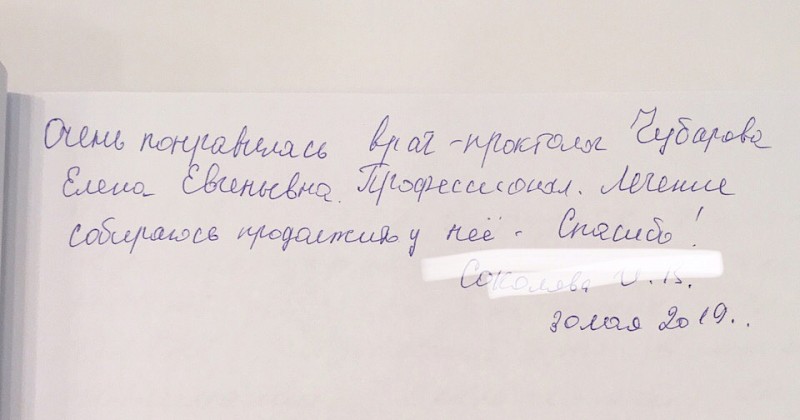 Очень понравилась врач-проктолог Чубарова
Елена Евгеньевна. Профессионал. Лечение
собираюсь продолжить у неё. Спасибо!
30 мая 2019..